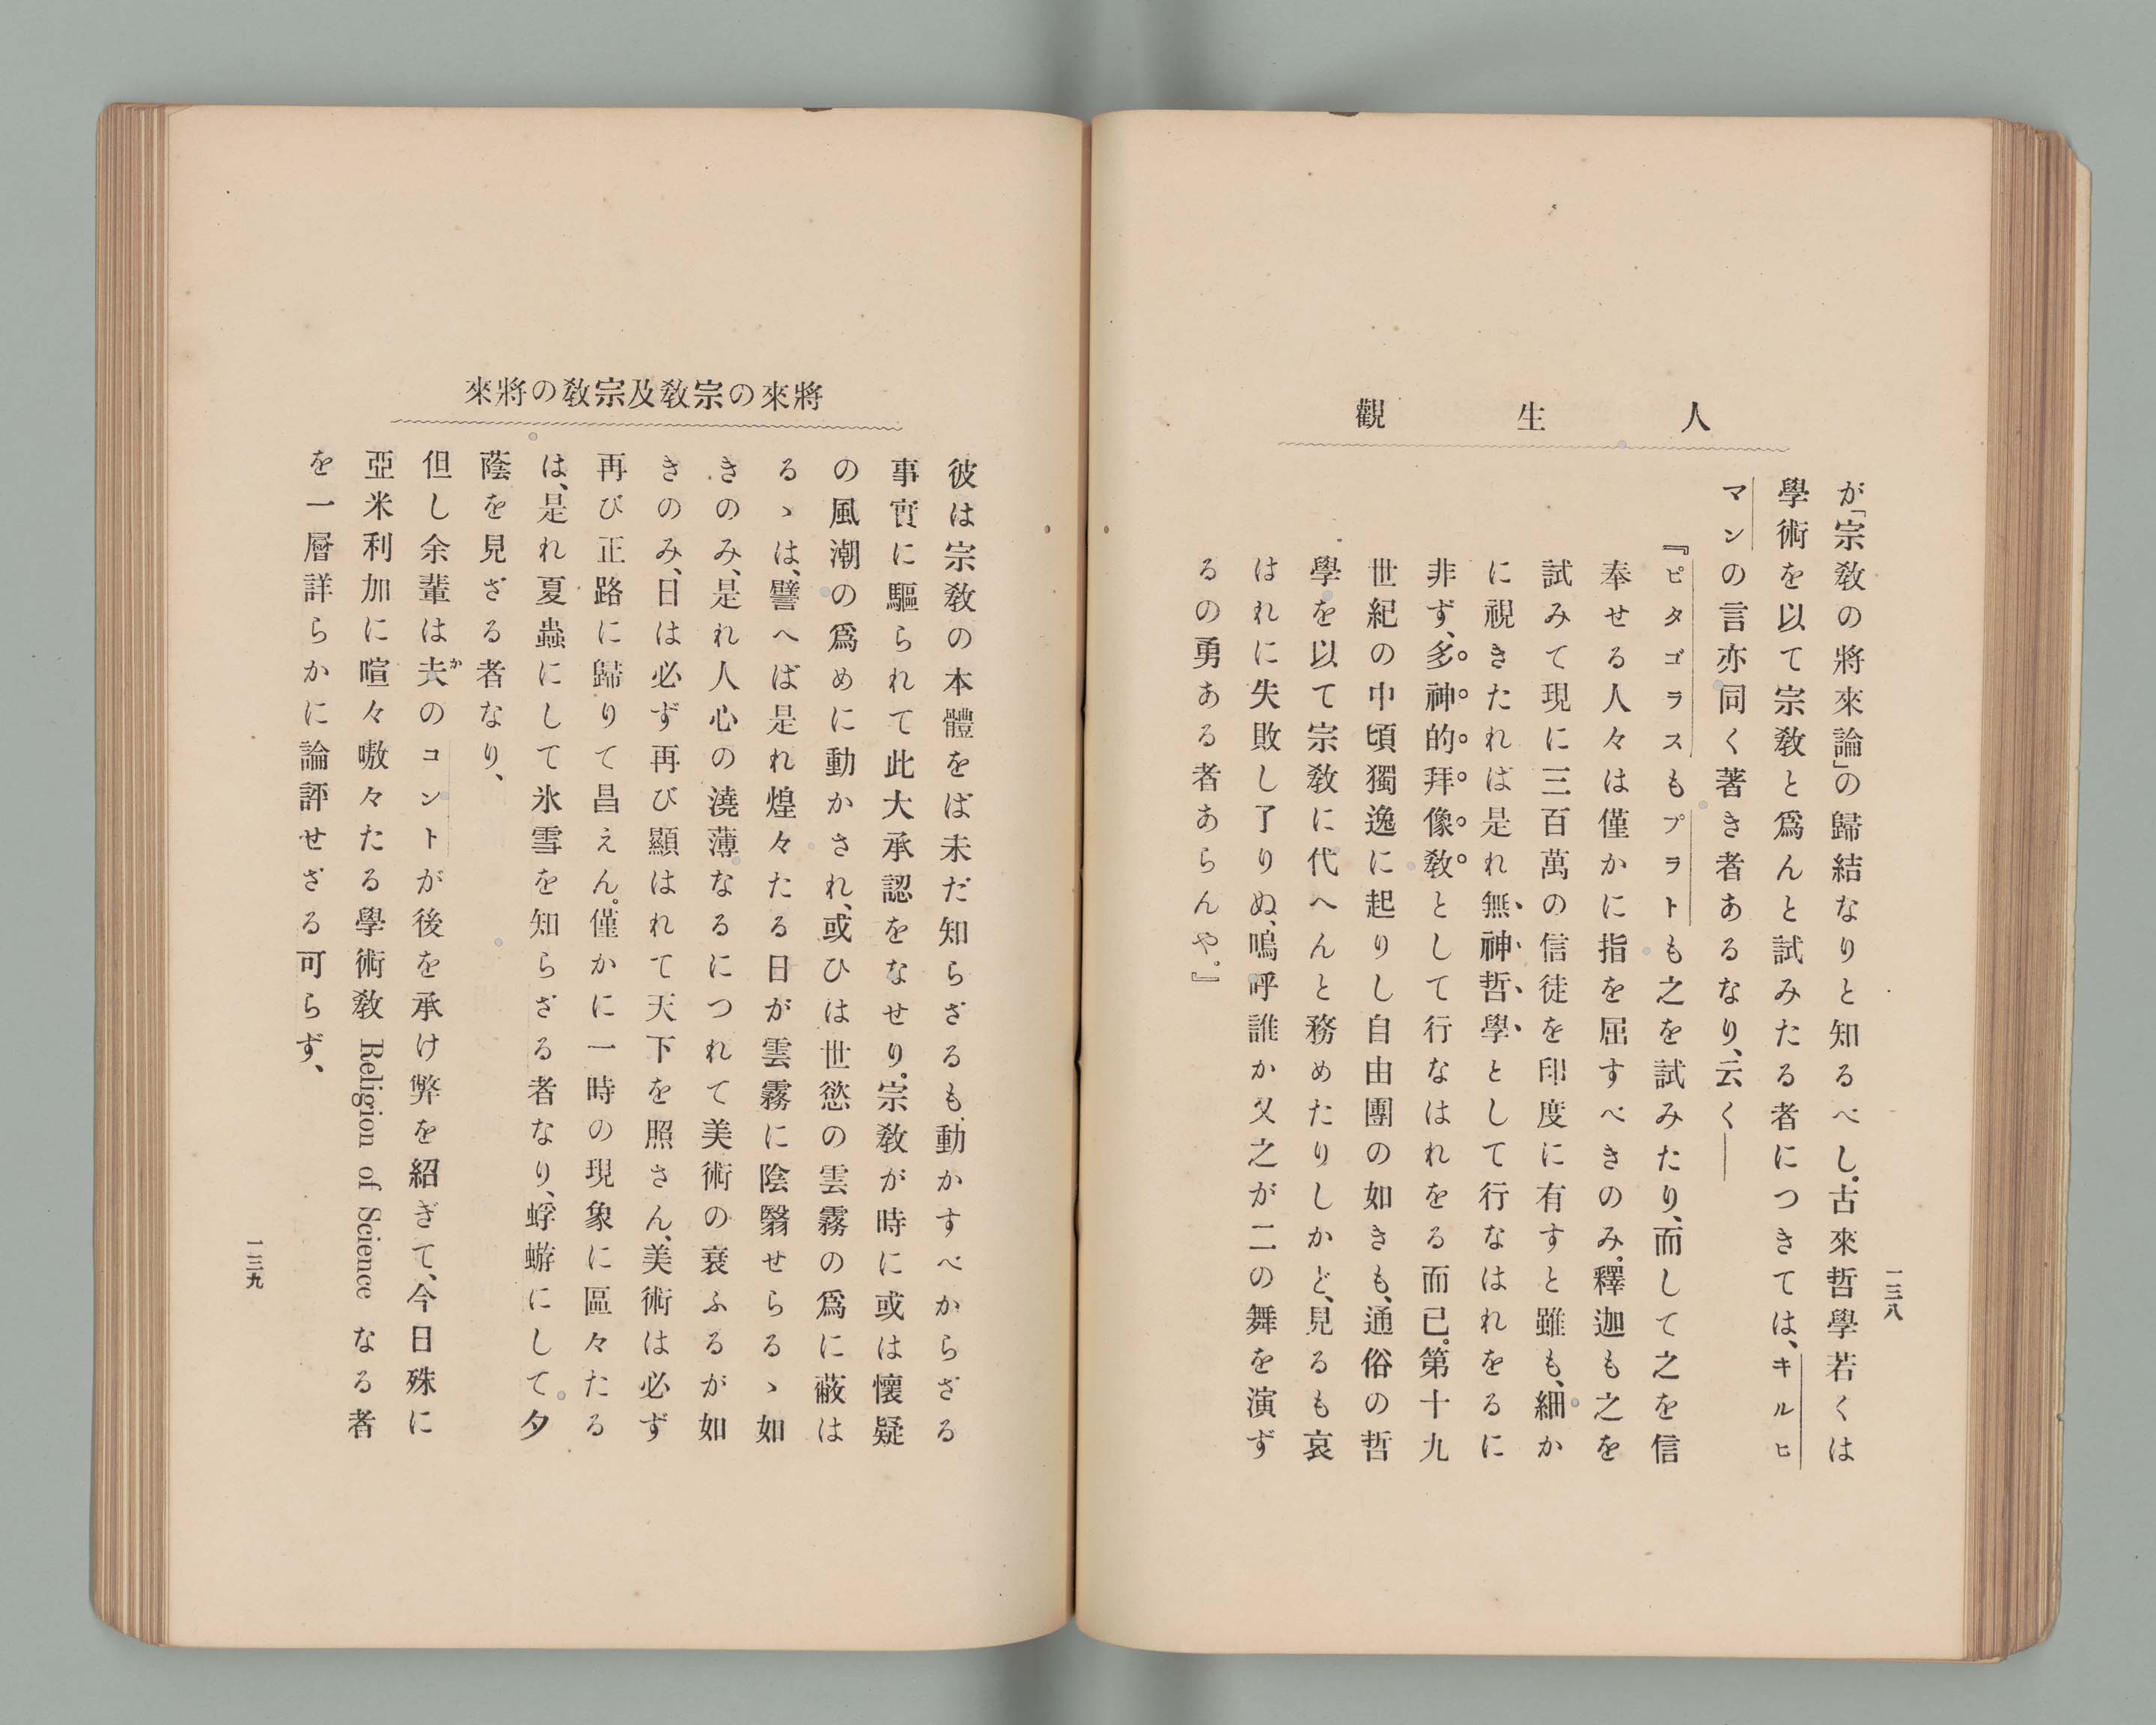 人生觀
一三八
が「宗教の將來論」の歸結なりと知るべし。古來哲學若くは
學術を以て宗教と爲んと試みたる者につきては、キルヒ
マンの言亦同く著き者あるなり、云く――
『ピタゴラスもプラトも之を試みたり、而して之を信
奉せる人々は僅かに指を屈すべきのみ。釋迦も之を
試みて現に三百萬の信徒を印度に有すと雖も、細か
に視きたれば是れ無神哲學として行なはれをるに
非ず、多神的拜像教として行なはれをる而已。第十九
世紀の中頃獨逸に起りし自由團の如きも、通俗の哲
學を以て宗教に代へんと務めたりしかど、見るも哀
はれに失敗し了りぬ、嗚呼誰か又之が二の舞を演ず
るの勇ある者あらんや。』
將來の宗教及宗教の將來
彼は宗教の本體をば未だ知らざるも、動かすべからざる
事實に驅られて此大承認をなせり。宗教が時に或は懷疑
の風潮の爲めに動かされ、或ひは世慾の雲霧の爲に蔽は
るゝは、譬へば是れ煌々たる日が雲霧に陰翳せらるゝ如
きのみ、是れ人心の澆薄なるにつれて美術の衰ふるが如
きのみ、日は必ず再び顯はれて天下を照さん、美術は必ず
再び正路に歸りて昌えん。僅かに一時の現象に區々たる
は、是れ夏蟲にして氷雪を知らざる者なり、蜉蝣にして夕
蔭を見ざる者なり、
但し余輩は夫かのコントが後を承け弊を紹ぎて、今日殊に
亞米利加に喧々嗷々たる學術教 Religion of Science なる者
を一層詳らかに論評せざる可らず、
一三九